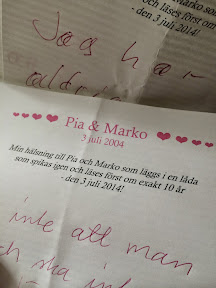 som spikas igen och läses först om exakt 10 år
- den 3 juli 2014!
Jag har
aldrig
Pia & Marko
3 juli 2004
Min hälsning till Pia och Marko som läggs i en låda
som spikas igen och läses först om exakt 10 år
- den 3 juli 2014!
inte att man
ska